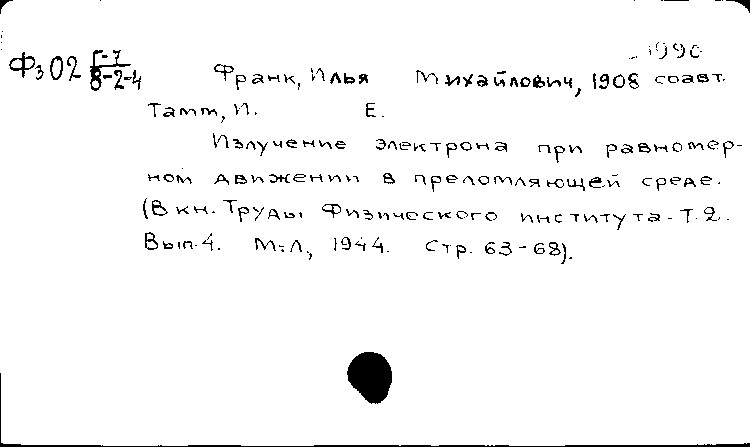 - 1990
Фз 02 Г-7/8-2-4 Франк, Илья Михайлович, 1908 соавт.
Тамм, И. Е.
Излучение электрона при равномер-
ном движении в преломляющей среде.
(В кн. Труды Физического института. Т. 2.
Вып. 4. М-Л, 1944. Стр. 63-68).